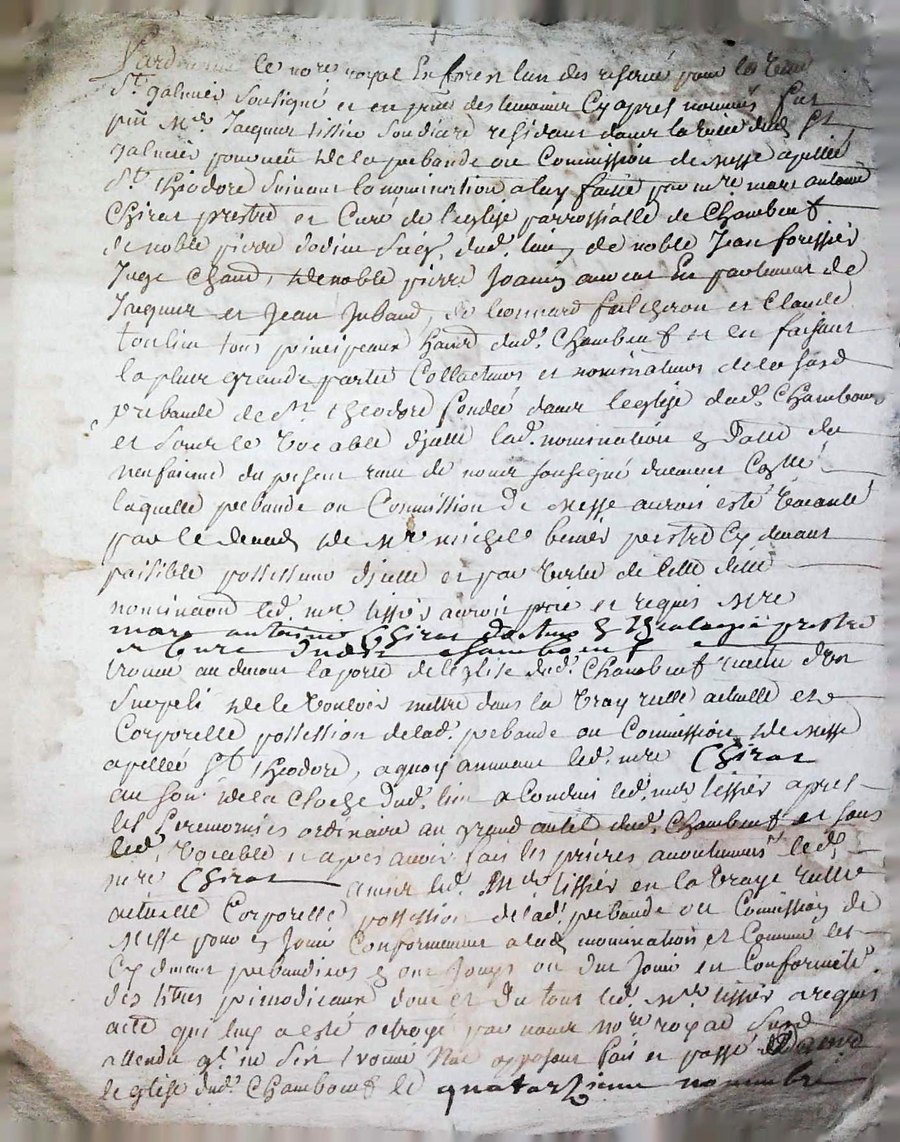 Pardevant le no.re royal En forest lun des reservé pour la ville
St. galmier soussigné et en pnce des temoins Cy apres nommés fut
pnt Mr. Jacques tissier soudiacre residant dans la ville dud. St
galmier pourveu de la prebande ou Commission de Messe apellée
St. theodore suivant la nomination a luy faitte par mre marc antoine
Chirat prestre et Curé de l'eglise parrossialle de Chambeuf
de noble pierre dud. lieu, de noble Jean forissier
Juge Chand, de noble pierre Joanin avocat En parlement de
Jacques et Jean Jubaud, de leonnard falcheron et Claude
toulin tous principaux hants dud. Chambeuf et en faisant
la plus grande partie Collateurs et nominateurs de la susd
prebande de St. theodore fondée dans l'eglise dud. Chambeuf
et sous le vocable d'jcelle lad. nomination en datte du
neufieme du present receu de nous soussigné duement Collé
laquelle prebande ou Commission de Messe auroit esté vacante
par le deceds de Mre michel prestre Cy devant
paisible possesseur d'jcelle et par vertu de cette ditte
nomination led. mre tissier auroit prié et requis Mre
marc antoine Chirat docteur en theologie prestre
et Curé dudit Chambeuf
trouvé au devant la porte de l'eglise dud. Chambeuf revetu d'un
surpeli de le vouloir mettre dans la vray reelle actuelle et
Corporelle possession de lad. prebande ou Commission de Messe
apellée St. theodore, a quoy annuant led. mre Chirat
au son de la Cloche dud. lieu a Conduit led. mre tissier apres
les Ceremonies ordinaire au grand autel dud. Chambeuf et sous
led. vocable et apres avoir fait les prieres accoutumées led.
mre Chirat a mis led. Mre tissier en la vraye reelle
actuelle Corporelle possession de lad. prebande ou Commission de
Messe pour en Jouir Conformement a lad. nomination et Comme les
Cy devant prebandiers en ont Jouys ou du Jouir en Conformité
des titres primodieaux dont et du tout led. Mre tissier a requis
acte qui luy a esté octroyé par nous no.re royal susd
attendu q. ne s'est trouvé Nul opposant fait et passé dans
le glise dud. Chambeuf le quatorzieme novembre